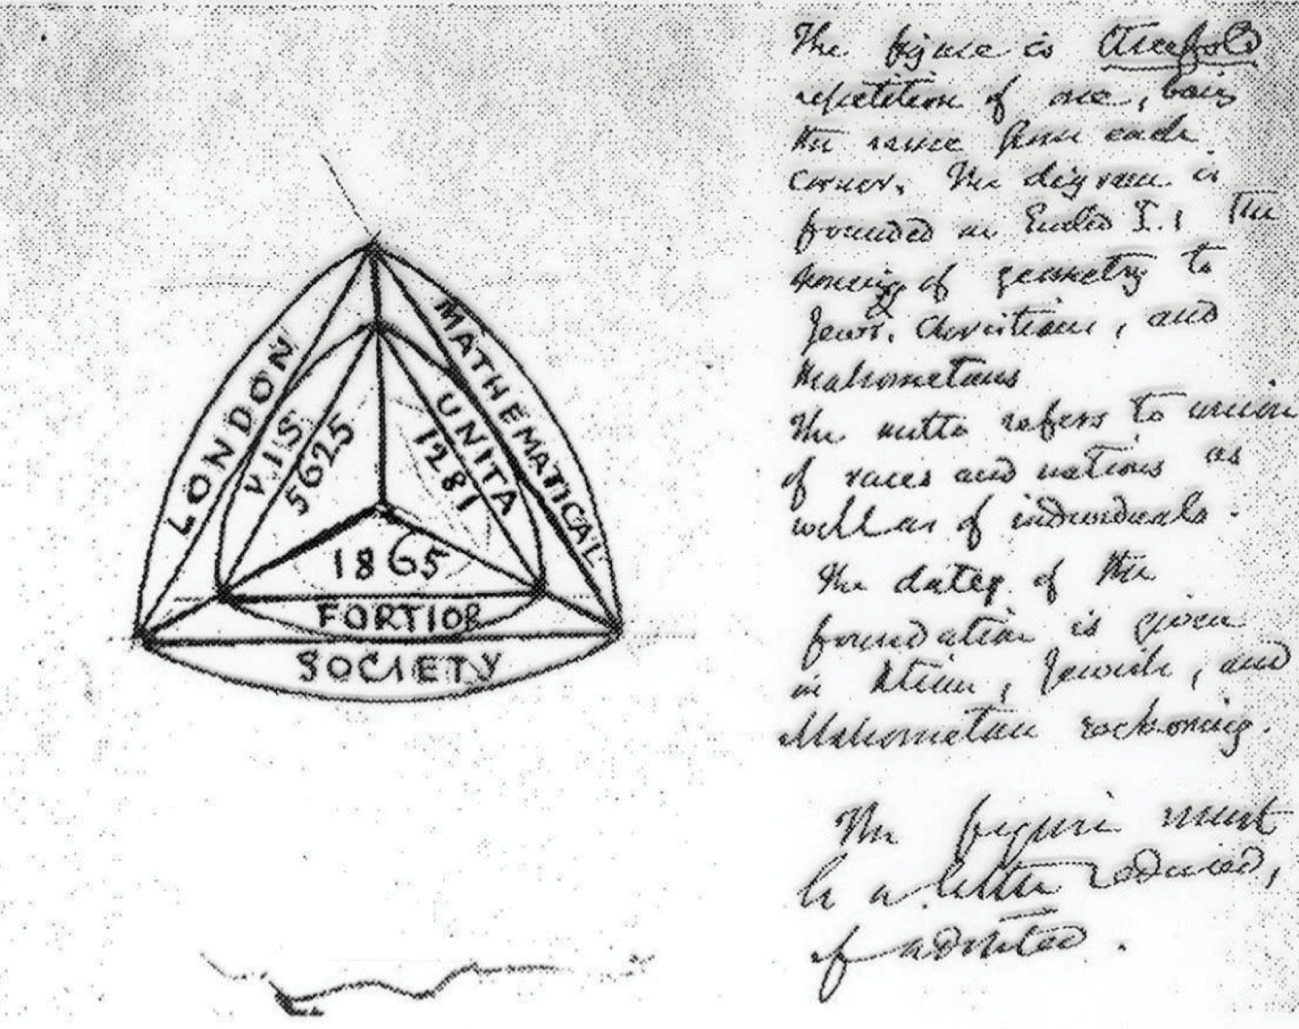 LONDON
MATHEMATICAL
SOCIETY
VIS
UNITA
FORTIOR
5625
1281
1865
The figure is threefold
repetition of one, being
the same from each
corner. The diagram is
founded on Euclid I.1 The
of geometry to
Jews, Christians, and
Mahometans
The motto refers to union
of races and nations as
well as of individuals.
The date of the
foundation is given
in Xtian, Jewish, and
Mahometan reckoning.
The figure must
be a little reduced,
if adopted.